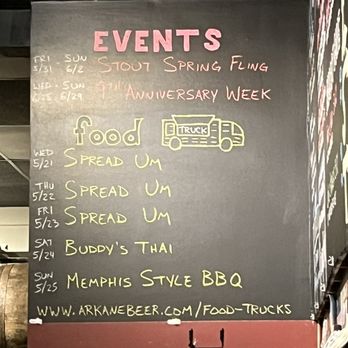 EVENTS
FRI - SUN
5/31 6/2 STOUT SPRING FLING
WED - SUN
6/25 6/29 9TH ANNIVERSARY WEEK
food TRUCK
WED
5/21 SPREAD UM
THU
5/22 SPREAD UM
FRI
5/23 SPREAD UM
SAT
5/24 BUDDY'S THAI
SUN
5/25 MEMPHIS STYLE BBQ
WWW.ARKANEBEER.COM/FOOD-TRUCKS